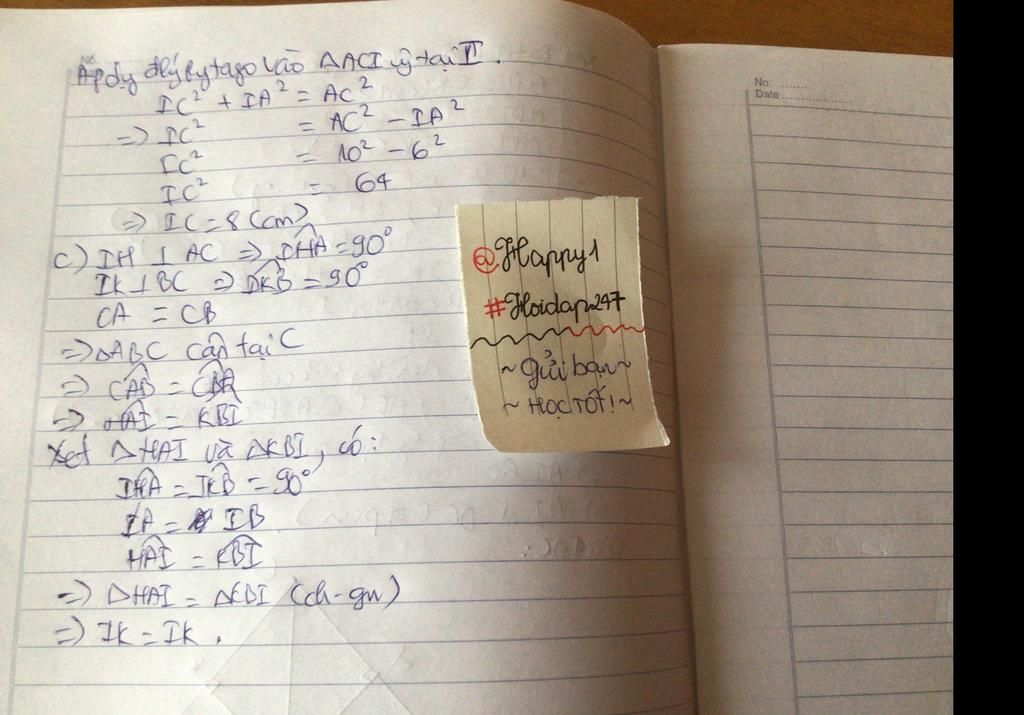 Áp dụ đlý Pytago vào ΔACI vg tại I.
IC² + IA² = AC²
=> IC² = AC² - IA²
IC² = 10² - 6²
IC² = 64
=> IC = 8 (cm)
c) IH ⊥ AC => IHA = 90°
IK ⊥ BC => IKB = 90°
CA = CB
=> ΔABC cân tại C
=> CAB = CBA
=> HAI = KBI
Xét ΔHAI và ΔKBI, có:
IHA = IKB = 90°
IA = IB
HAI = KBI
=> ΔHAI = ΔKBI (ch-gn)
=> IK = IK.
@Happy1
#Hoidap247
~ Gửi bạn ~
~ HỌC TỐT! ~
No. ..........
Date ....................